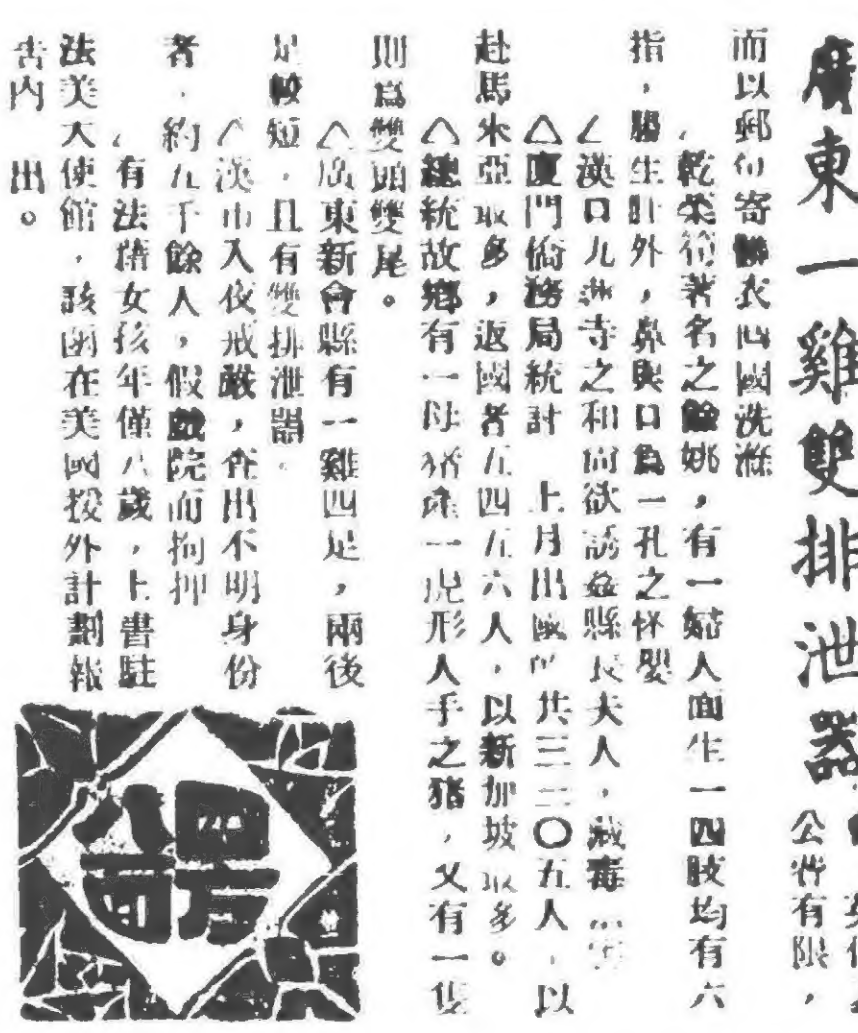 廣東一雞雙排泄器
公帑有限，
而以郵包寄髒衣回國洗滌
乾菜筍著名之餘姚，有一婦人面生一四肢均有六
指，腸生肚外，鼻與口為一孔之怪嬰
△漢口九蓮寺之和尚欲誘姦縣長夫人，
△廈門僑務局統計 上月出國的共三二〇五人，以
赴馬來亞最多，返國者五四五六人，以新加坡最多。
△總統故鄉有一母豬產一虎形人手之豬，又有一隻
則為雙頭雙尾。
△廣東新會縣有一雞四足，兩後
足較短，且有雙排泄器。
△漢市入夜戒嚴，查出不明身份
者，約五千餘人，假戲院而拘押
有法籍女孩年僅八歲，上書駐
法美大使館，該函在美國援外計劃報
告內 出。
四方
八面